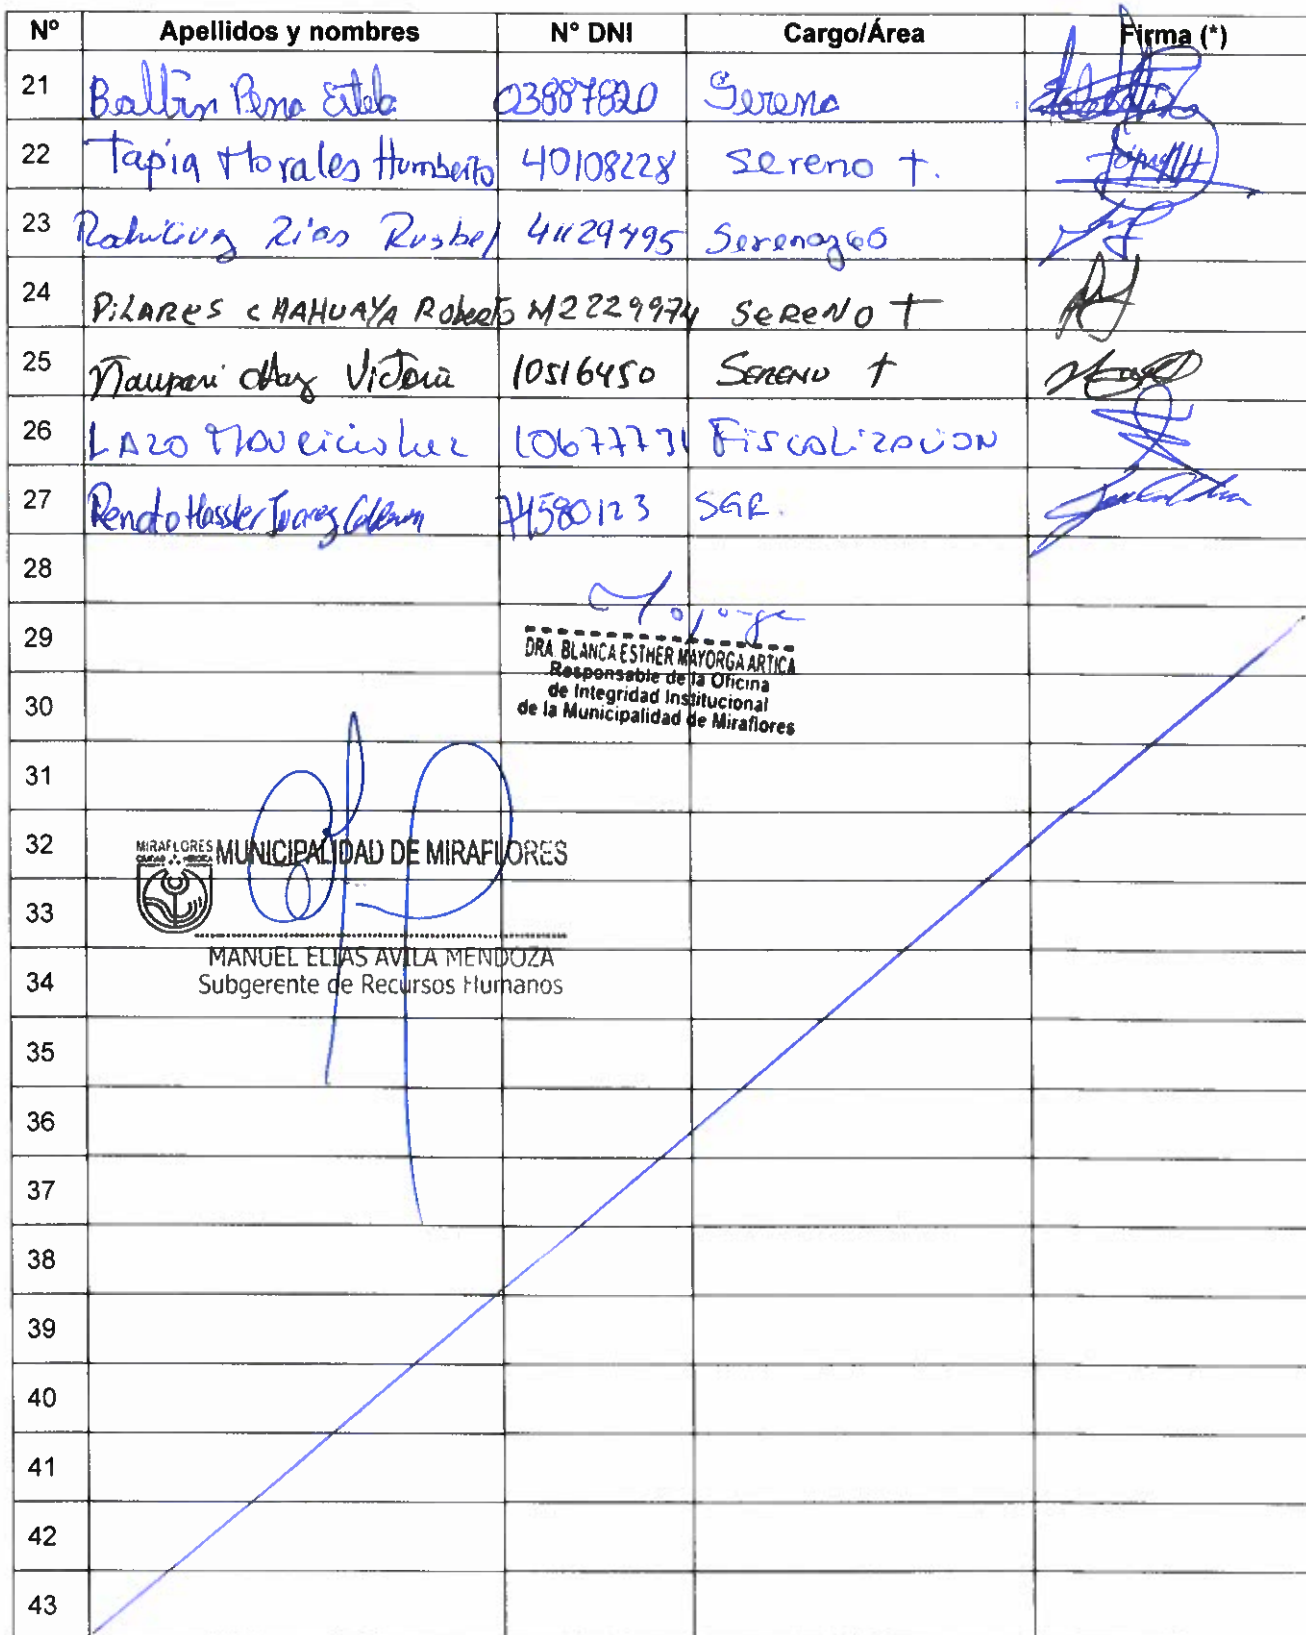 Nº Apellidos y nombres N° DNI Cargo/Área Firma (*)
21 Balbin Pena Estela 03887820 Serena
22 Tapia Morales Humberto 40108228 sereno t.
23 Rodriguez Rios Rusbel 41129495 Serenazgo
24 PiLARES CHAHUAYA Roberto 42229974 SERENO T
25 Ñaupari Victoria 10516450 SERENO T
26 LAZO Mauricio Luz 10677731 Fiscalización
27 Renato Hassler Juarez 74580123 SGR.
28
29
DRA. BLANCA ESTHER MAYORGA ARTICA
Responsable de la Oficina
de Integridad Institucional
de la Municipalidad de Miraflores
30
31
32
MIRAFLORES MUNICIPALIDAD DE MIRAFLORES
33
MANUEL ELIAS AVILA MENDOZA
34
Subgerente de Recursos Humanos
35
36
37
38
39
40
41
42
43